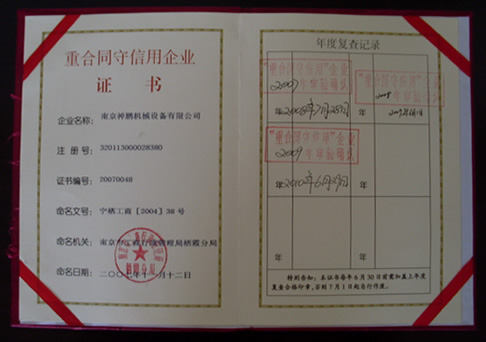 重合同守信用企业
证 书
企业名称: 南京神鹏机械设备有限公司
注 册 号: 320113000028380
证书编号: 20070048
命名文号: 宁栖工商［2004］38号
命名机关: 南京市工商行政管理局栖霞分局
命名日期: 二〇〇七年十一月十二日
年度复查记录
"重合同守信用"企业
2007 年审验确认
2008年7月28日
2008
年
"重合同守信用"企业
2009 年审验确认
2010年6月29日
年
年
年
特别告知：本证书每年6月30日前需加盖上年度
复查合格印章，否则7月1日起自行作废。